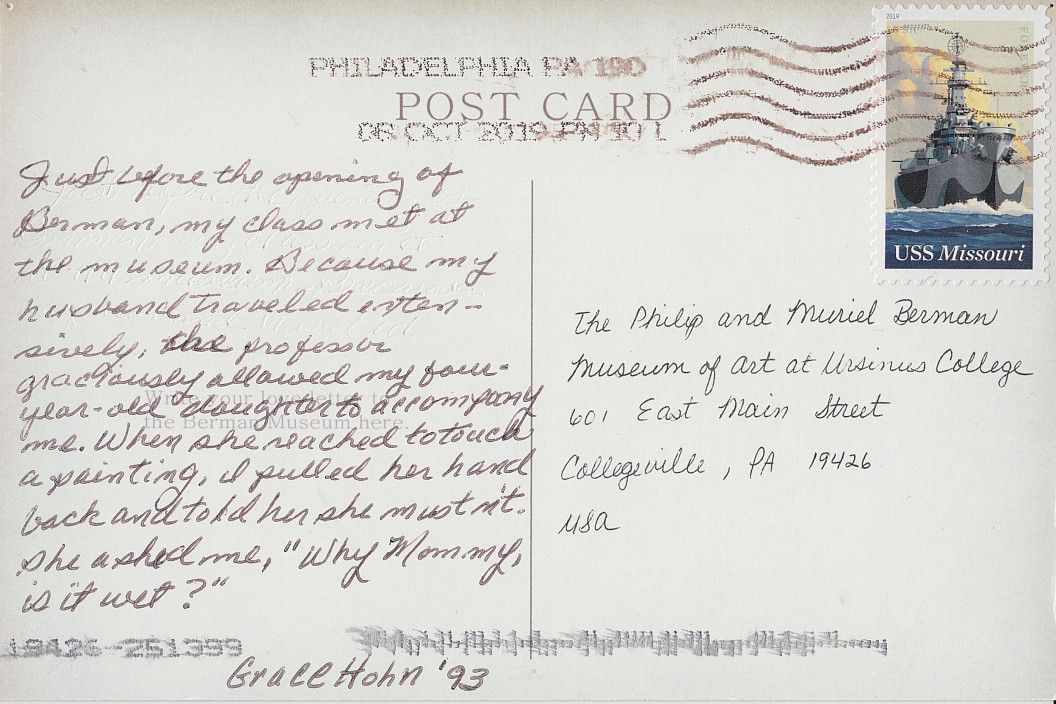 PHILADELPHIA PA 190
POST CARD
08 OCT 2019 PM 10 L
2019
FOREVER
USS Missouri
Just before the opening of
Berman, my class met at
the museum. Because my
husband traveled exten-
sively, the professor
graciously allowed my four-
year-old daughter to accompany
me. When she reached to touch
a painting, I pulled her hand
back and told her she mustn't.
She asked me, "Why Mommy,
is it wet?"
Grace Hohn '93
Write your love letter to
the Berman Museum here.
The Philip and Muriel Berman
Museum of Art at Ursinus College
601 East Main Street
Collegeville, PA 19426
USA
19426-251399